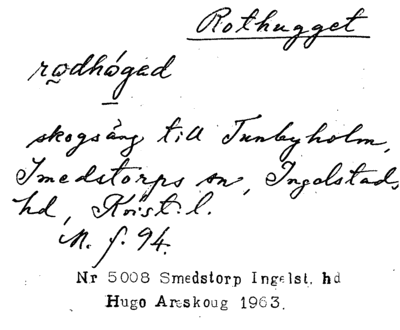 Rothugget
rødhǿgad
skogsäng till Tunbyholm,
Smedstorps sn, Ingelstads
hd, Krist. l.
M. f. 94.
Nr 5008 Smedstorp Ingelst. hd
Hugo Areskoug 1963.